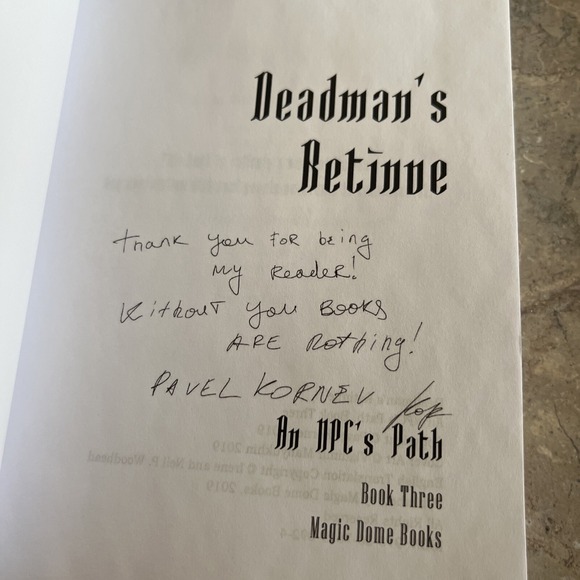 Deadman's
Retinue
Thank you for being
my Reader!
Without you Books
ARE nothing!
PAVEL KORNEV
An NPC's Path
Book Three
Magic Dome Books